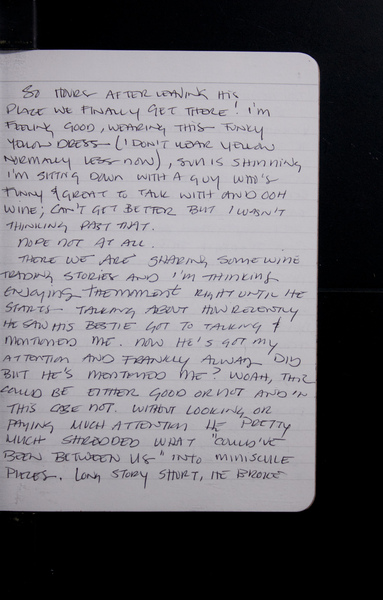 SO HOURS AFTER LEAVING HIS
PLACE WE FINALLY GET THERE! I'M
FEELING GOOD, WEARING THIS FUNKY
YELLOW DRESS (I DON'T WEAR YELLOW
NORMALLY LESS NOW), SUN IS SHINNING
I'M SITTING DOWN WITH A GUY WHO'S
FUNNY & GREAT TO TALK WITH AND OOH
WINE; CAN'T GET BETTER BUT I WASN'T
THINKING PAST THAT.
NOPE NOT AT ALL.
THERE WE ARE SHARING SOME WINE
TRADING STORIES AND I'M THINKING
ENJOYING THE MOMENT RIGHT UNTIL HE
STARTS TALKING ABOUT HOW RECENTLY
HE SAW HIS BESTIE GOT TO TALKING &
MENTIONED ME. NOW HE'S GOT MY
ATTENTION AND FRANKLY ALWAYS DID
BUT HE'S MENTIONED ME? WOAH, THIS
COULD BE EITHER GOOD OR NOT AND IN
THIS CASE NOT. WITHOUT LOOKING OR
PAYING MUCH ATTENTION HE PRETTY
MUCH SHREDDED WHAT "COULD'VE
BEEN BETWEEN US" INTO MINISCULE
PIECES. LONG STORY SHORT, HE BROKE